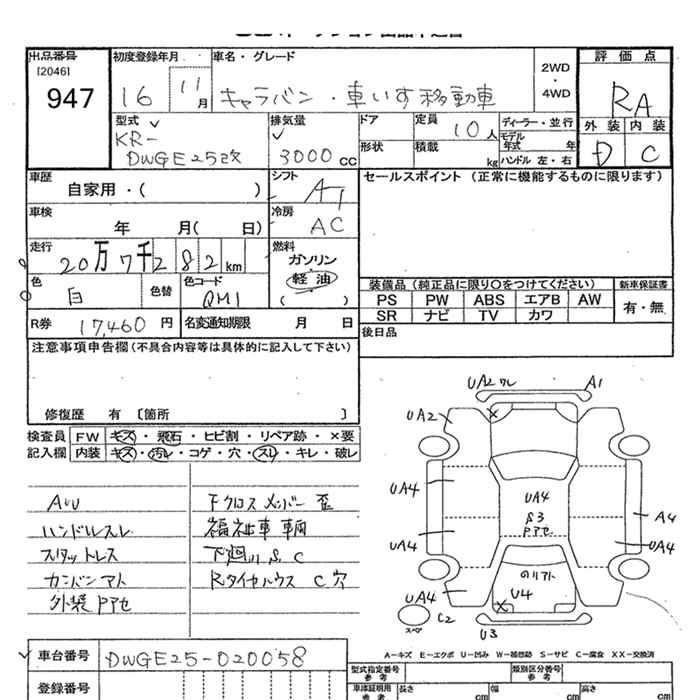 出品番号 初度登録年月 車名・グレード 2WD ・4WD 評価点
[2046]
947 16 11月 キャラバン・車いす移動車 RA
外装 内装
D C
型式 排気量 ドア 定員 10人 ディーラー・並行
KR- モデル年式 年
DWGE25改 3000cc 形状 積載 kg ハンドル 左・右
車歴 自家用・( ) シフト AT セールスポイント (正常に機能するものに限ります)
車検 年 月( 日) 冷房 AC
走行 20万7千282km 燃料 ガソリン 軽油 ( )
色 白 色替 色コード QM1
装備品 (純正品に限り○をつけてください) 新車保証書
PS PW ABS エアB AW 有・無
SR ナビ TV カワ
R券 17,460円 名変通知期限 月 日 後日品
注意事項申告欄(不具合内容等は具体的に記入して下さい)
修復歴 有 [箇所 ]
検査員 FW キズ・飛石・ヒビ割・リペア跡・×要
記入欄 内装 キズ・汚レ・コゲ・穴・スレ・キレ・破レ
ハンドルスレ
スタットレス
外装Pアセ
Fクロスメンバー歪
福祉車車輌
下廻りS.C
Rタイヤハウス C穴
UA2 ワレ A1
UA2
UA4 UA4 A4
S3
Pアセ
UA4 UA4
UA4 U4
スペア C2
U3
A-キズ E-エクボ U-凹み W-補修跡 S-サビ C-腐食 XX-交換済
車台番号 DWGE25-020058
型式指定番号 参考 類別区分番号 参考
登録番号 車庫証明用 参考 長さ cm 幅 cm 高さ cm